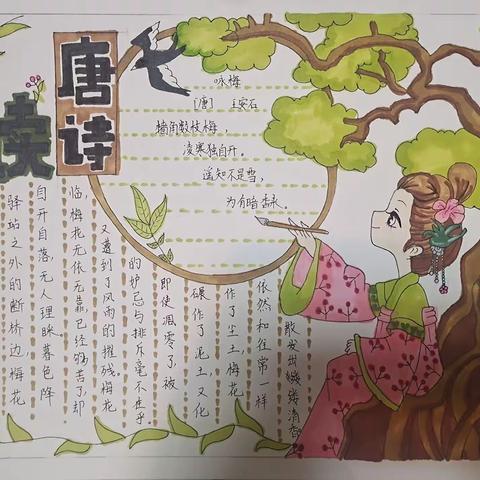 读
唐诗
咏梅
[唐] 王安石
墙角数枝梅，
凌寒独自开。
遥知不是雪，
为有暗香来。
驿站之外的断桥边，梅花
自开自落无人理睬暮色降
临，梅花无依无靠已经够苦了，却
又遭到了风雨的摧残。梅花
的护忌与排斥毫不在乎。
即使凋零了，被
碾作了泥土，又化
作了尘土，梅花
依然和往常一样
散发出缕缕清香